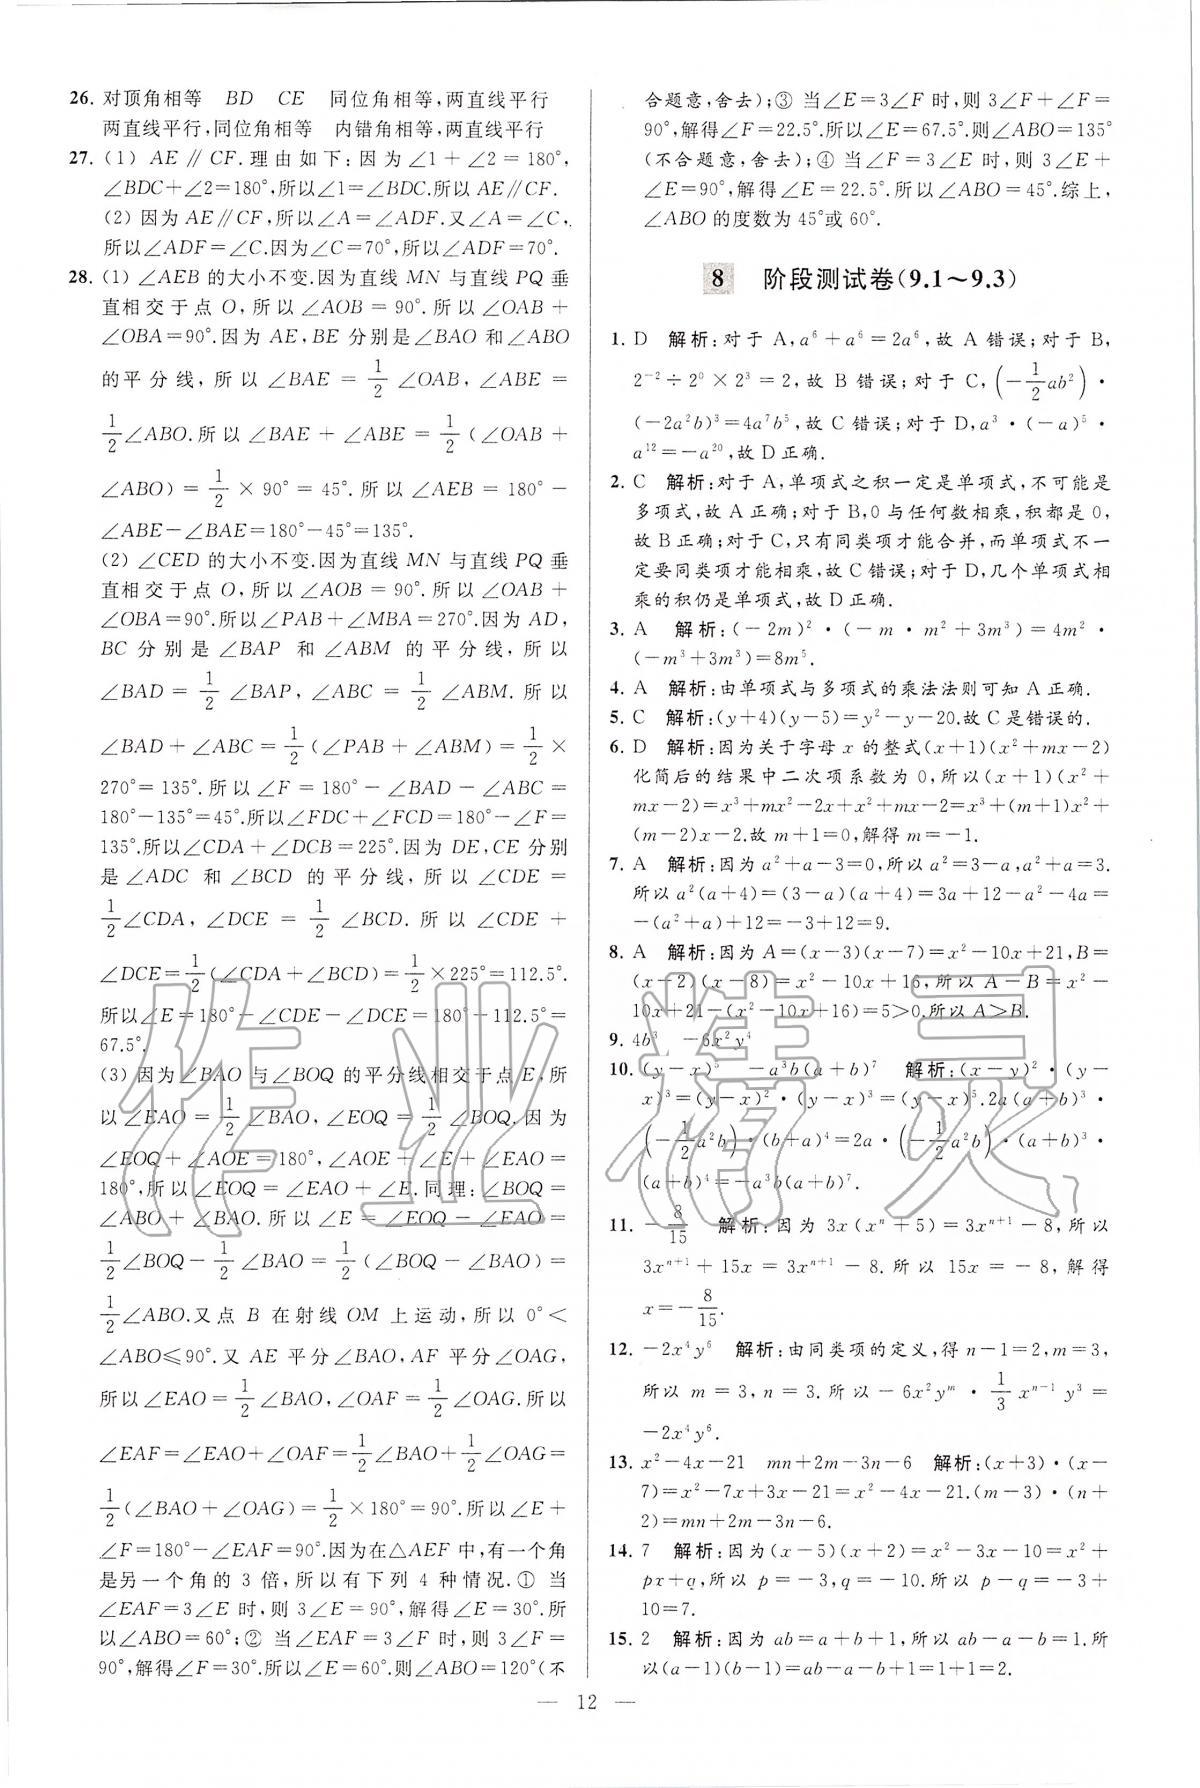 26. 对顶角相等　BD　CE　同位角相等,两直线平行
两直线平行,同位角相等　内错角相等,两直线平行
27. (1) AE∥CF.理由如下:因为∠1+∠2=180°,
∠BDC+∠2=180°,所以∠1=∠BDC.所以AE∥CF.
(2) 因为AE∥CF,所以∠A=∠ADF.又∠A=∠C,
所以∠ADF=∠C.因为∠C=70°,所以∠ADF=70°.
28. (1) ∠AEB的大小不变.因为直线MN与直线PQ垂
直相交于点O,所以∠AOB=90°.所以∠OAB+
∠OBA=90°.因为AE,BE分别是∠BAO和∠ABO
的平分线,所以∠BAE=1/2∠OAB,∠ABE=
1/2∠ABO.所以∠BAE+∠ABE=1/2(∠OAB+
∠ABO)=1/2×90°=45°.所以∠AEB=180°-
∠ABE-∠BAE=180°-45°=135°.
(2) ∠CED的大小不变.因为直线MN与直线PQ垂
直相交于点O,所以∠AOB=90°.所以∠OAB+
∠OBA=90°.所以∠PAB+∠MBA=270°.因为AD,
BC分别是∠BAP和∠ABM的平分线,所以
∠BAD=1/2∠BAP,∠ABC=1/2∠ABM.所以
∠BAD+∠ABC=1/2(∠PAB+∠ABM)=1/2×
270°=135°.所以∠F=180°-∠BAD-∠ABC=
180°-135°=45°.所以∠FDC+∠FCD=180°-∠F=
135°.所以∠CDA+∠DCB=225°.因为DE,CE分别
是∠ADC和∠BCD的平分线,所以∠CDE=
1/2∠CDA,∠DCE=1/2∠BCD.所以∠CDE+
∠DCE=1/2(∠CDA+∠BCD)=1/2×225°=112.5°.
所以∠E=180°-∠CDE-∠DCE=180°-112.5°=
67.5°.
(3) 因为∠BAO与∠BOQ的平分线相交于点E,所
以∠EAO=1/2∠BAO,∠EOQ=1/2∠BOQ.因为
∠EOQ+∠AOE=180°,∠AOE+∠E+∠EAO=
180°,所以∠EOQ=∠EAO+∠E.同理:∠BOQ=
∠ABO+∠BAO.所以∠E=∠EOQ-∠EAO=
1/2∠BOQ-1/2∠BAO=1/2(∠BOQ-∠BAO)=
1/2∠ABO.又点B在射线OM上运动,所以0°<
∠ABO≤90°.又AE平分∠BAO,AF平分∠OAG,
所以∠EAO=1/2∠BAO,∠OAF=1/2∠OAG.所以
∠EAF=∠EAO+∠OAF=1/2∠BAO+1/2∠OAG=
1/2(∠BAO+∠OAG)=1/2×180°=90°.所以∠E+
∠F=180°-∠EAF=90°.因为在△AEF中,有一个角
是另一个角的3倍,所以有下列4种情况.① 当
∠EAF=3∠E时,则3∠E=90°,解得∠E=30°.所
以∠ABO=60°;② 当∠EAF=3∠F时,则3∠F=
90°,解得∠F=30°.所以∠E=60°.则∠ABO=120°(不
合题意,舍去);③ 当∠E=3∠F时,则3∠F+∠F=
90°,解得∠F=22.5°.所以∠E=67.5°.则∠ABO=135°
(不合题意,舍去);④ 当∠F=3∠E时,则3∠E+
∠E=90°,解得∠E=22.5°.所以∠ABO=45°.综上,
∠ABO的度数为45°或60°.
8　阶段测试卷(9.1～9.3)
1. D　解析:对于A,a⁶+a⁶=2a⁶,故A错误;对于B,
2⁻²÷2⁰×2³=2,故B错误;对于C,(-1/2ab²)·
(-2a²b)³=4a⁷b⁵,故C错误;对于D,a³·(-a)⁵·
a¹²=-a²⁰,故D正确.
2. C　解析:对于A,单项式之积一定是单项式,不可能是
多项式,故A正确;对于B,0与任何数相乘,积都是0,
故B正确;对于C,只有同类项才能合并,而单项式不一
定要同类项才能相乘,故C错误;对于D,几个单项式相
乘的积仍是单项式,故D正确.
3. A　解析:(-2m)²·(-m·m²+3m³)=4m²·
(-m³+3m³)=8m⁵.
4. A　解析:由单项式与多项式的乘法法则可知A正确.
5. C　解析:(y+4)(y-5)=y²-y-20.故C是错误的.
6. D　解析:因为关于字母x的整式(x+1)(x²+mx-2)
化简后的结果中二次项系数为0,所以(x+1)(x²+
mx-2)=x³+mx²-2x+x²+mx-2=x³+(m+1)x²+
(m-2)x-2.故m+1=0,解得m=-1.
7. A　解析:因为a²+a-3=0,所以a²=3-a,a²+a=3.
所以a²(a+4)=(3-a)(a+4)=3a+12-a²-4a=
-(a²+a)+12=-3+12=9.
8. A　解析:因为A=(x-3)(x-7)=x²-10x+21,B=
(x-2)(x-8)=x²-10x+16,所以A-B=x²-
10x+21-(x²-10x+16)=5>0.所以A>B.
9. 4b³　-6x²y⁴
10. (y-x)⁵　-a³b(a+b)⁷　解析:(x-y)²·(y-
x)³=(y-x)²·(y-x)³=(y-x)⁵.2a(a+b)³·
(-1/2a²b)·(b+a)⁴=2a·(-1/2a²b)·(a+b)³·
(a+b)⁴=-a³b(a+b)⁷.
11. -8/15　解析:因为3x(xⁿ+5)=3xⁿ⁺¹-8,所以
3xⁿ⁺¹+15x=3xⁿ⁺¹-8.所以15x=-8,解得
x=-8/15.
12. -2x⁴y⁶　解析:由同类项的定义,得n-1=2,m=3,
所以m=3,n=3.所以-6x²yᵐ·1/3xⁿ⁻¹y³=
-2x⁴y⁶.
13. x²-4x-21　mn+2m-3n-6　解析:(x+3)·(x-
7)=x²-7x+3x-21=x²-4x-21.(m-3)·(n+
2)=mn+2m-3n-6.
14. 7　解析:因为(x-5)(x+2)=x²-3x-10=x²+
px+q,所以p=-3,q=-10.所以p-q=-3+
10=7.
15. 2　解析:因为ab=a+b+1,所以ab-a-b=1.所
以(a-1)(b-1)=ab-a-b+1=1+1=2.
— 12 —
作业精灵